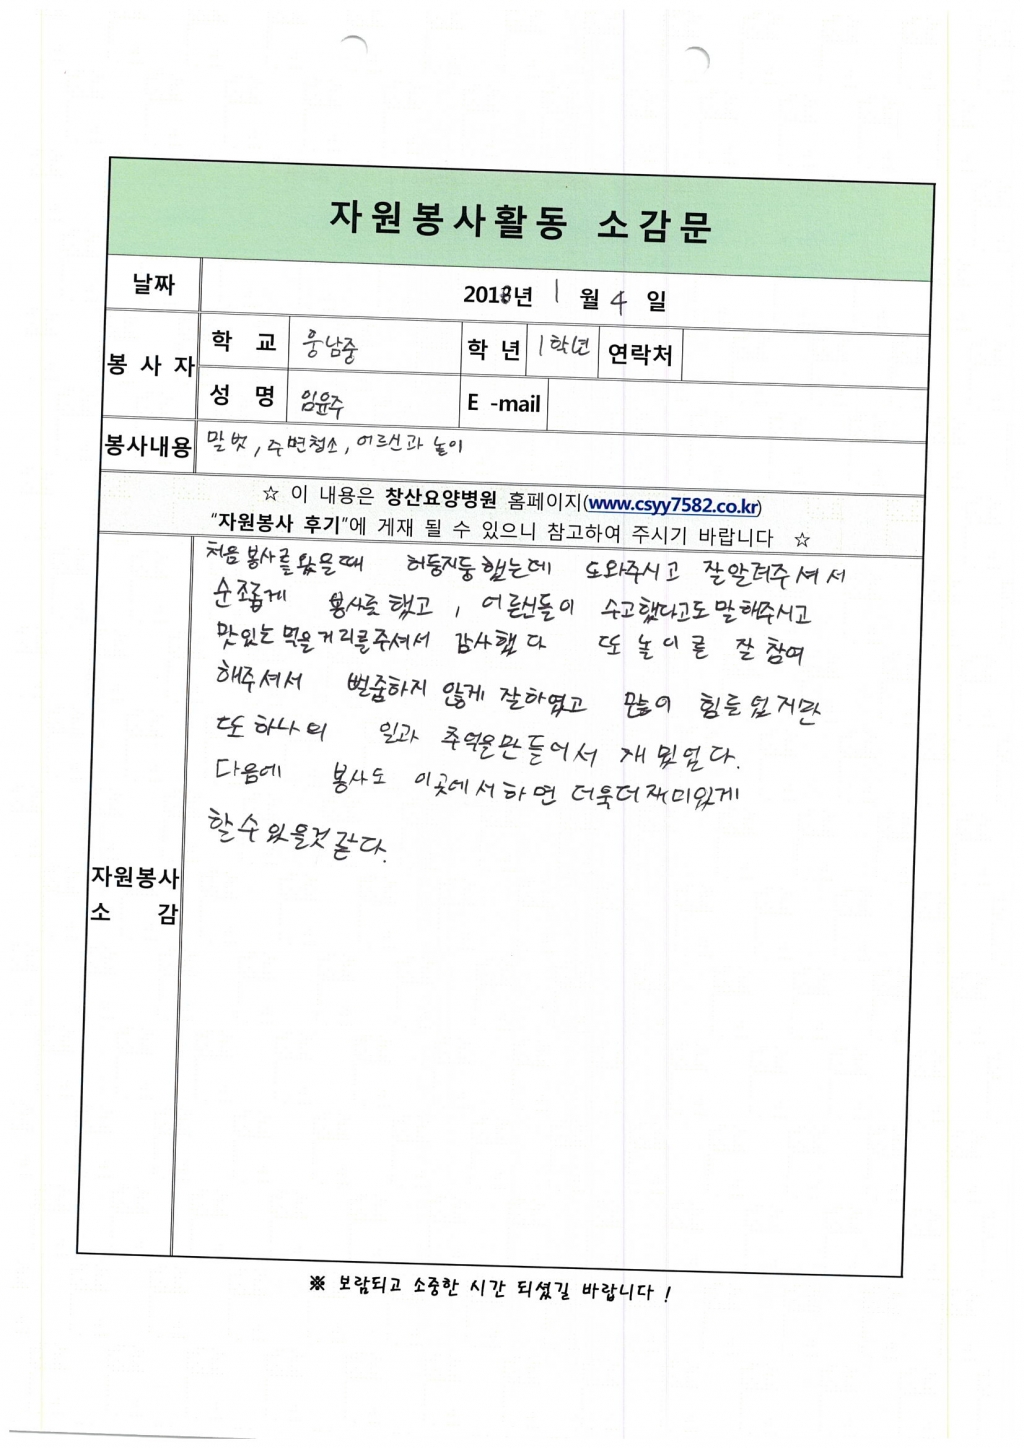 자원봉사활동 소감문
날짜 2018년 1 월 4 일
봉사자 학교 웅남중 학년 1학년 연락처
성명 임윤주 E-mail
봉사내용 말벗, 주변청소, 어르신과 놀이
☆ 이 내용은 창산요양병원 홈페이지(www.csyy7582.co.kr)
"자원봉사 후기"에 게재 될 수 있으니 참고하여 주시기 바랍니다 ☆
처음 봉사를 왔을때 허둥지둥 했는데 도와주시고 잘알려주셔서
순조롭게 봉사를 했고, 어른신들이 수고했다고도 말해주시고
맛있는 먹을거리를 주셔서 감사했다 또 놀이를 잘 참여
해주셔서 뻘줌하지 않게 잘하였고 많이 힘들었지만
또 하나의 일과 추억을 만들어서 재밌었다.
다음에 봉사도 이곳에서 하면 더욱더 재미있게
할 수 있을것 같다.
자원봉사
소 감
※ 보람되고 소중한 시간 되셨길 바랍니다 !